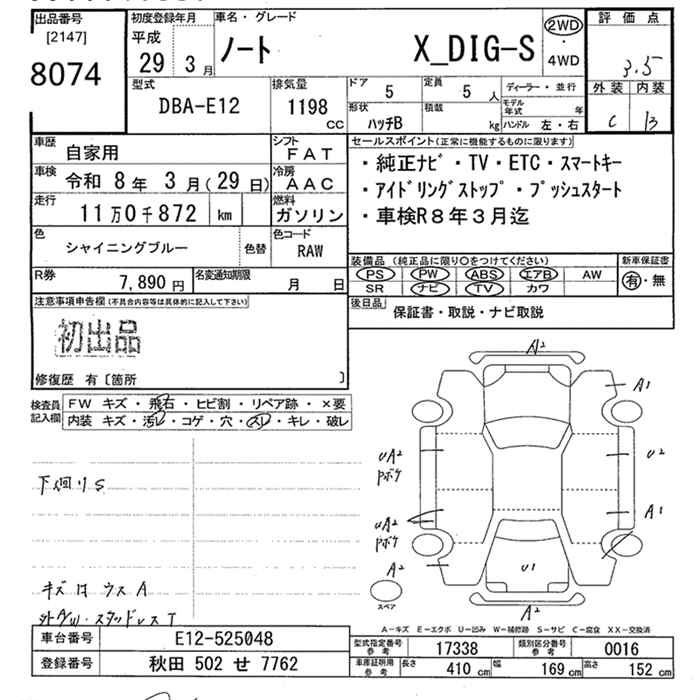 出品番号
[2147]
8074
初度登録年月
平成
29 3月
車名・グレード
ノート X_DIG-S
2WD
・
4WD
評価点
3.5
外装 内装
C B
型式
DBA-E12
排気量
1198
CC
ドア
5
定員
5 人
形状
ハッチB
積載
kg
ディーラー・並行
モデル年式 年
ハンドル 左・右
車歴
自家用
シフト
FAT
車検
令和 8年 3月(29日)
冷房
AAC
走行
11万0千872 km
燃料
ガソリン
色
シャイニングブルー
色替
色コード
RAW
R券
7,890円
名変通知期限
月 日
セールスポイント(正常に機能するものに限ります)
・純正ナビ・TV・ETC・スマートキー
・アイドリングストップ・プッシュスタート
・車検R8年3月迄
装備品 (純正品に限り○をつけてください)
PS PW ABS エアB AW
SR ナビ TV カワ
新車保証書
有・無
後日品
保証書・取説・ナビ取説
注意事項申告欄(不具合内容等は具体的に記入して下さい)
初出品
修復歴 有〔箇所 〕
検査員記入欄
FW キズ・飛石・ヒビ割・リペア跡・×要
内装 キズ・汚レ・コゲ・穴・スレ・キレ・破レ
下廻りS
キズ ウスA
スタッドレスT
A2
A1
UA2
Pボケ
U2
UA2
Pボケ
A1
A2
U1
スペア
A2
A-キズ E-エクボ U-凹み W-補修跡 S-サビ C-腐食 XX-交換済
車台番号
E12-525048
登録番号
秋田 502 せ 7762
型式指定番号
参考
17338
類別区分番号
参考
0016
車庫証明用
参考
長さ 410 cm
幅 169 cm
高さ 152 cm